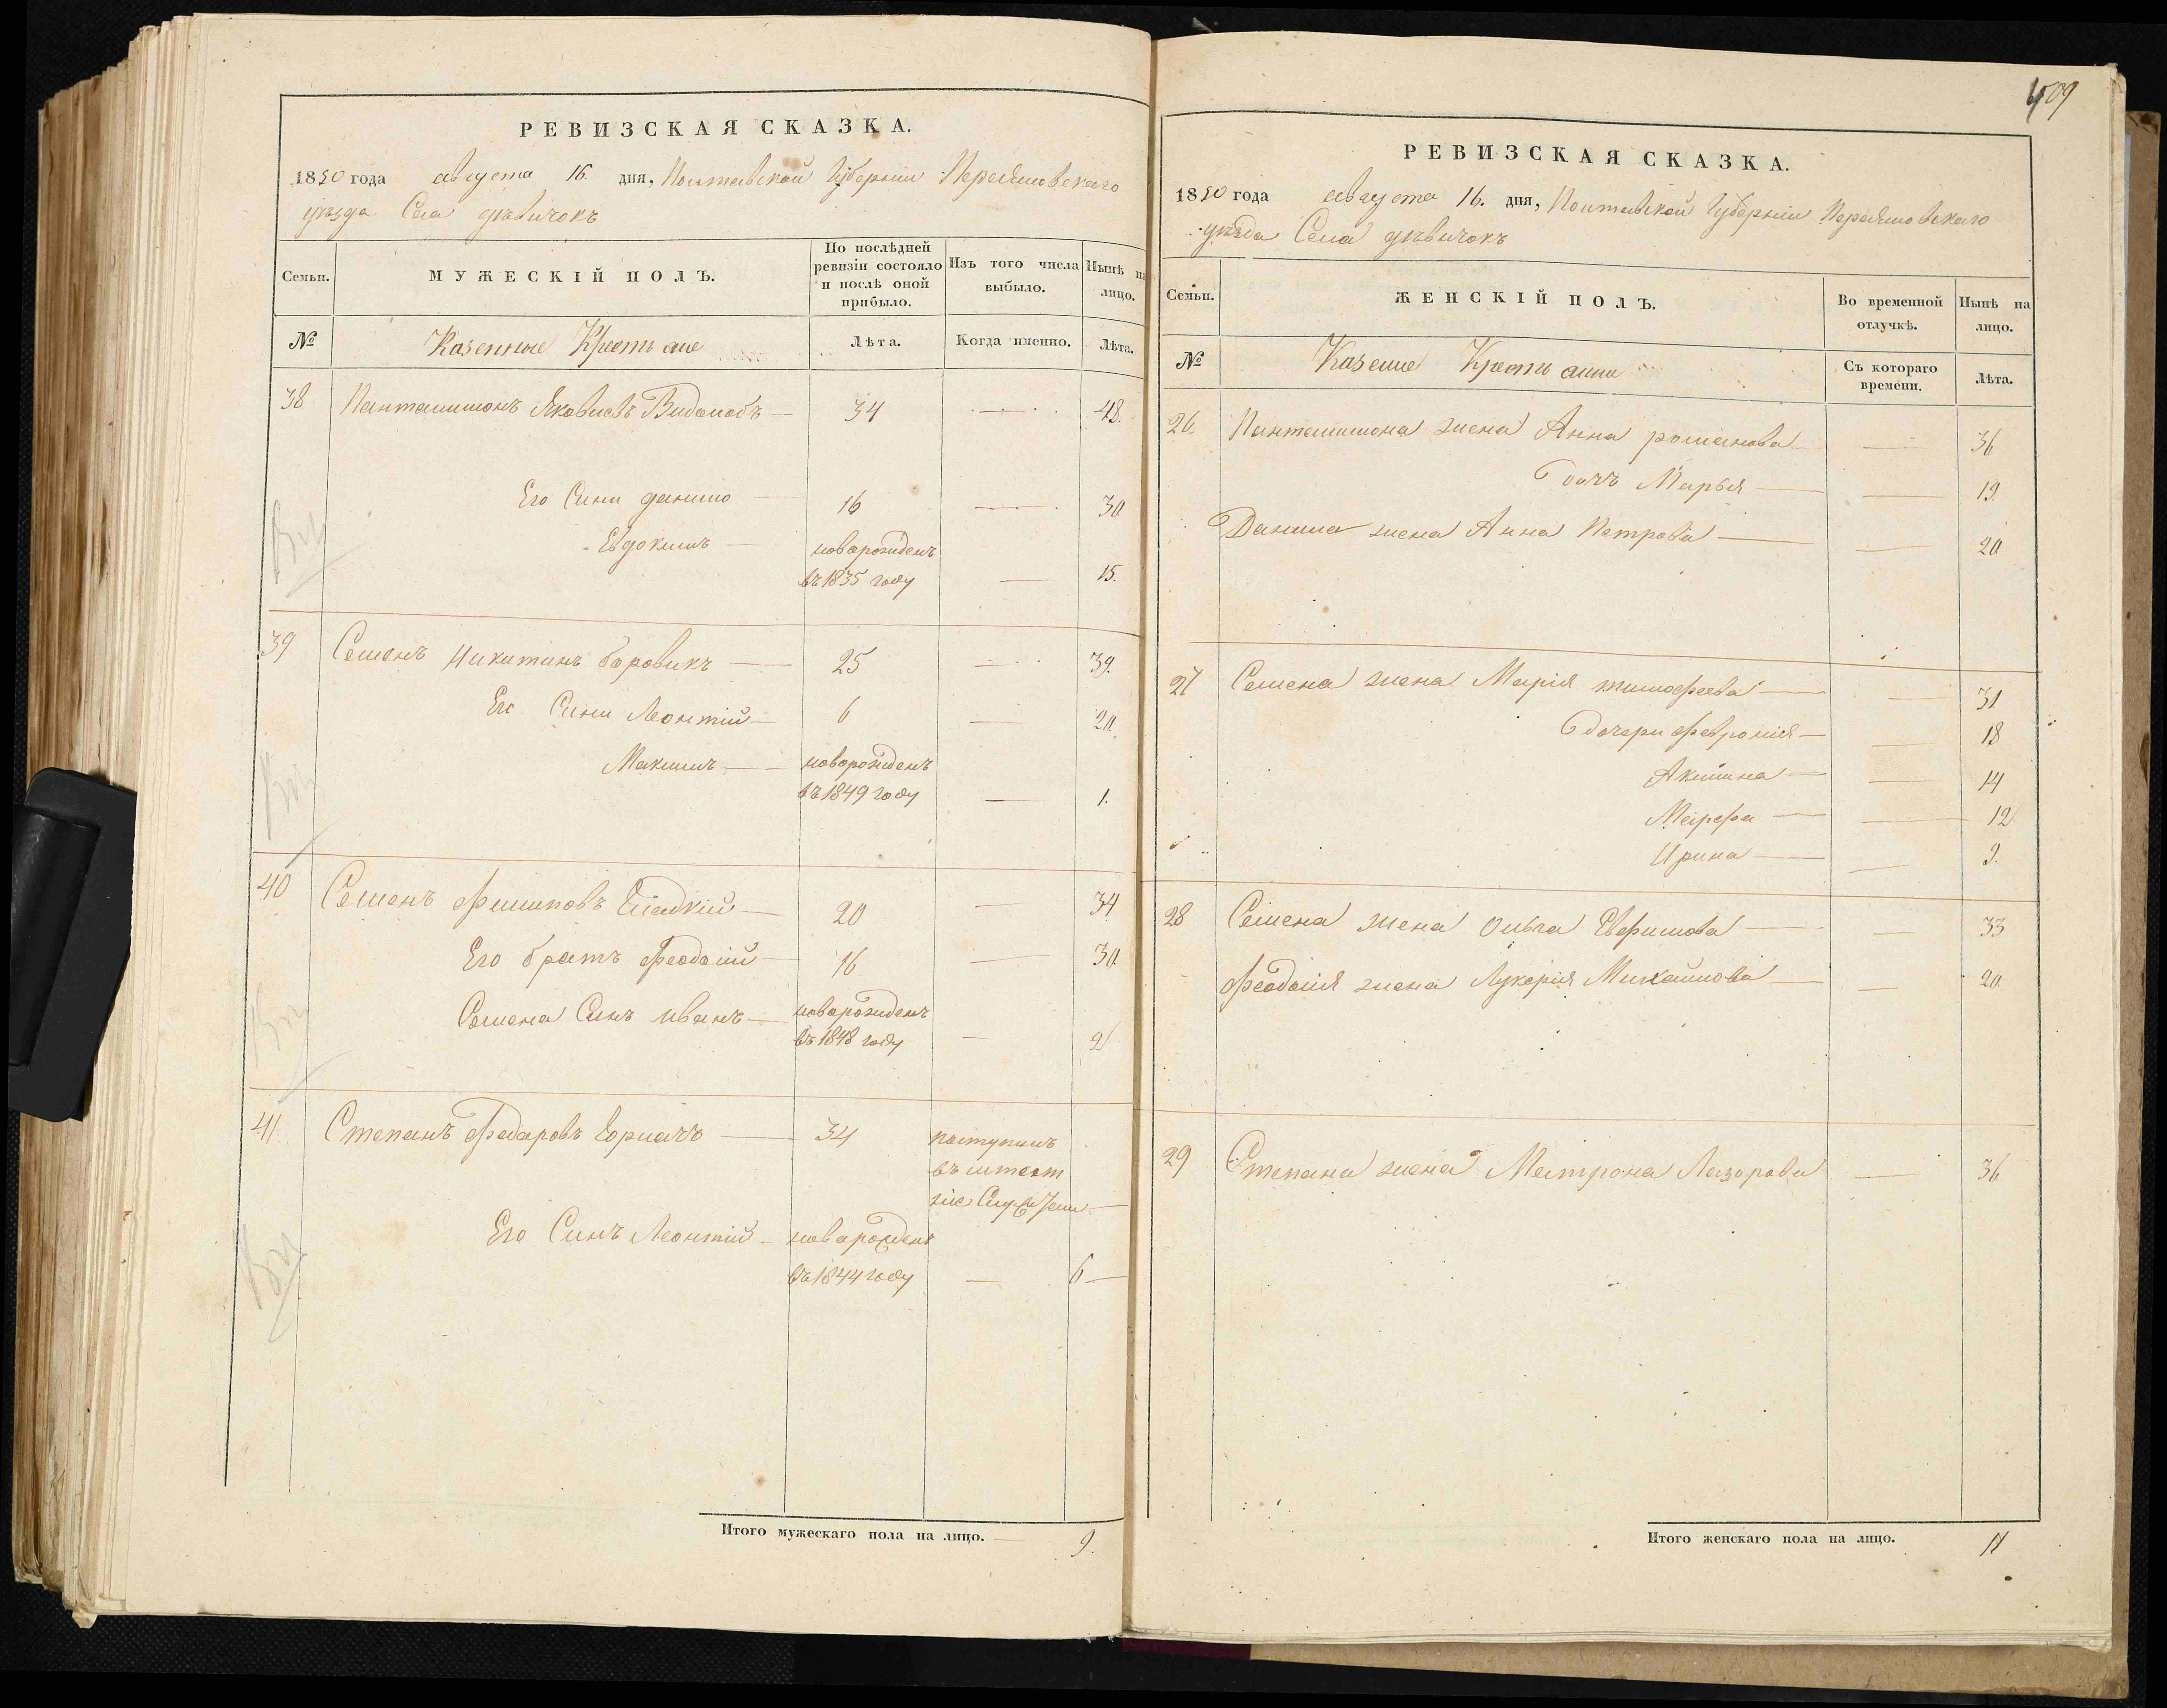 РЕВИЗСКАЯ СКАЗКА.
1850 года августа 16. дня, Полтавской Губерніи Переяславскаго
уѣзда Села дѣвичокъ
Семьи. МУЖЕСКІЙ ПОЛЪ. По послѣдней ревизіи состояло и послѣ оной прибыло. Изъ того числа выбыло. Нынѣ на лицо.
№ Казенные Крестьяне Лѣта. Когда именно. Лѣта.
38 Панталимонъ Яковлевъ 34 48.
Его Сини данило 16 30
Евдокимъ новарожденъ
въ 1835 году 15.
39 Семенъ Никитинъ боровикъ 25 39.
Его Сини Леонтій 6 20.
Максимъ новорожденъ
въ 1849 году 1.
40 Семенъ Филиповъ 20 34
Его братъ Феодосій 16 30
Семена Синъ иванъ новарожденъ
въ 1848 году 2
41 Степанъ Федаровъ 34 поступилъ
въ штат
Его Синъ Леонтій новарожденъ
въ 1844 году 6
Итого мужескаго пола на лицо. 9.
409
РЕВИЗСКАЯ СКАЗКА.
1850 года августа 16. дня, Полтавской Губерніи Переяславскаго
уѣзда Села дѣвичокъ
Семьи. ЖЕНСКІЙ ПОЛЪ. Во временной отлучкѣ. Нынѣ на лицо.
№ Съ котораго времени. Лѣта.
26. Панталимона жена Анна романова 36
дочъ Марья 19.
Данила жена Анна Петрова 20
27 Семена жена Марія тимофеева 31
дочери Февронія 18
Акилина 14
Марфа 12
Ирина 9.
28 Семена жена Ольга Ефимова 33
Феодосія жена Лукерія Михайлова 20.
29 Степана жена Матрона Лазорова 36
Итого женскаго пола на лицо. 11